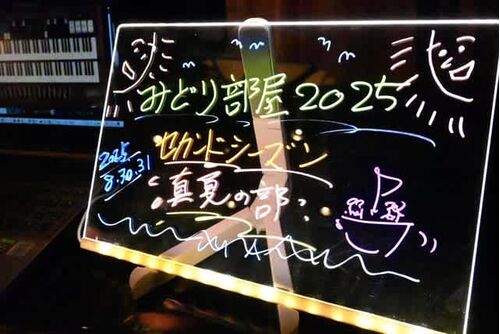 みどり部屋2025
セカンドシーズン
2025.
8.30.31
真夏の部